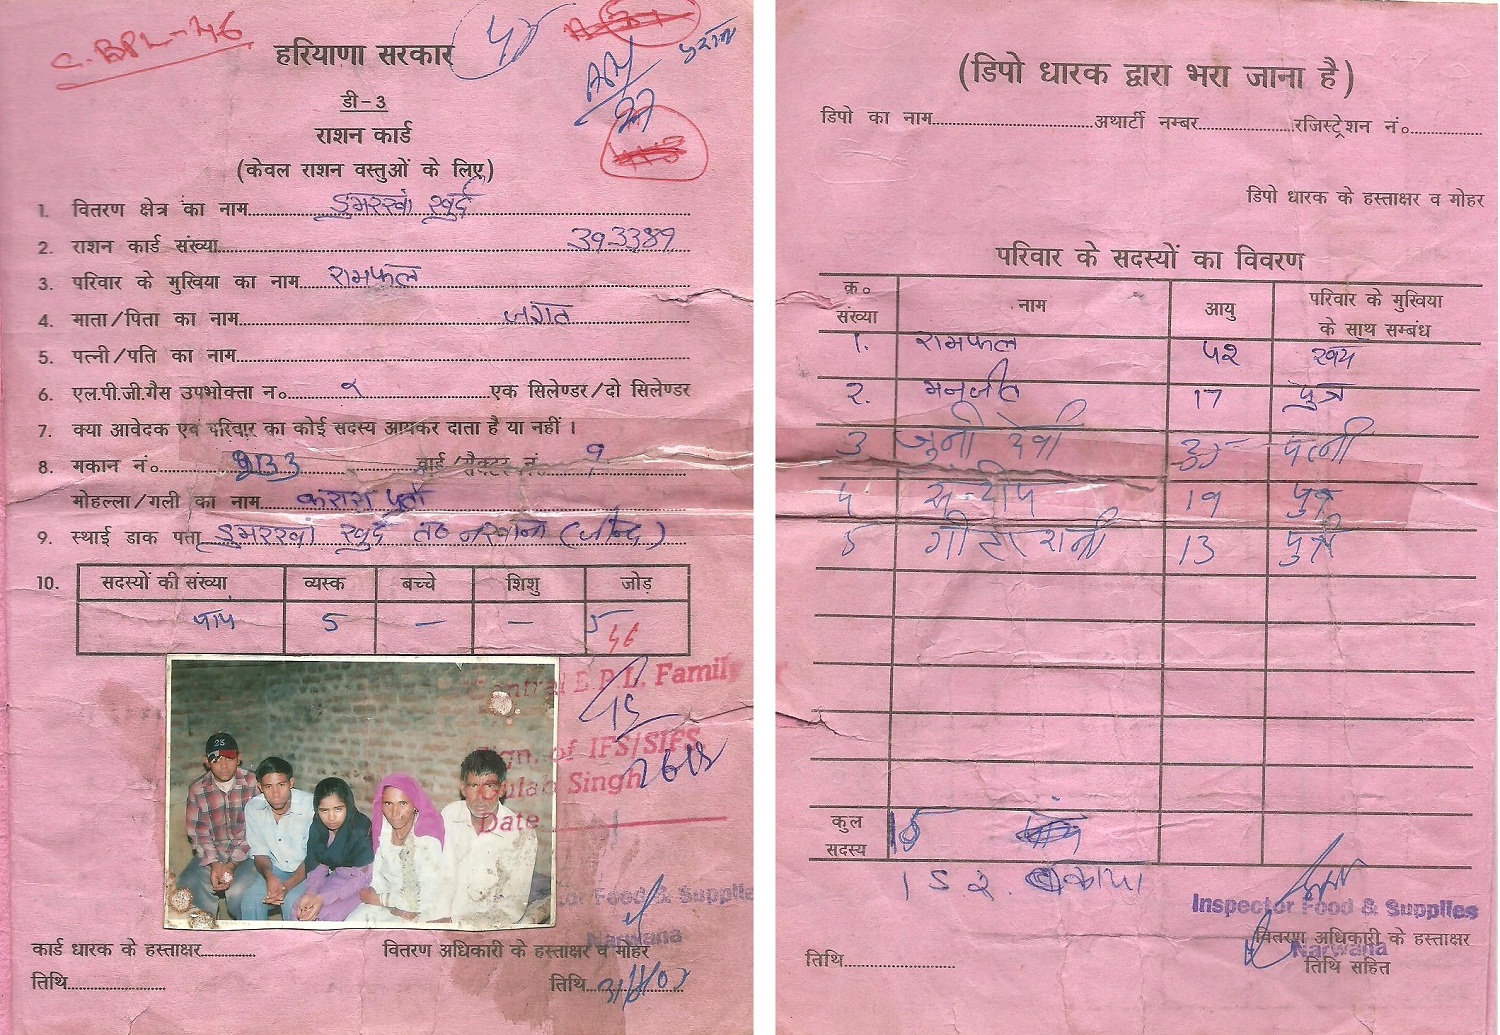 C. BPL-46
हरियाणा सरकार
डी-3
राशन कार्ड
(केवल राशन वस्तुओं के लिए)
1. वितरण क्षेत्र का नाम डुमरखां खुर्द
2. राशन कार्ड संख्या 393389
3. परिवार के मुखिया का नाम रामफल
4. माता/पिता का नाम जगत
5. पत्नी/पति का नाम
6. एल.पी.जी.गैस उपभोक्ता न० एक सिलेण्डर/दो सिलेण्डर
7. क्या आवेदक एवं परिवार का कोई सदस्य आयकर दाता है या नहीं ।
8. मकान नं० वार्ड/सैक्टर नं. 9
मोहल्ला/गली का नाम
9. स्थाई डाक पता डुमरखां खुर्द तह नरवाना (जीन्द)
10. सदस्यों की संख्या व्यस्क बच्चे शिशु जोड़
पांच 5 — — 5
56
Central B.P.L. Family
Sign. of IFS/SIFS
Gulab Singh
Date
Inspector Food & Supplies
Narwana
कार्ड धारक के हस्ताक्षर वितरण अधिकारी के हस्ताक्षर व मोहर
तिथि तिथि
(डिपो धारक द्वारा भरा जाना है)
डिपो का नाम अथार्टी नम्बर रजिस्ट्रेशन नं०
डिपो धारक के हस्ताक्षर व मोहर
परिवार के सदस्यों का विवरण
क्र० संख्या नाम आयु परिवार के मुखिया के साथ सम्बंध
1. रामफल ५२ स्वयं
२. मनजीत 17 पुत्र
3 जुनी देवी पत्नी
4 सन्दीप 19 पुत्र
5 गीता रानी 13 पुत्री
कुल सदस्य
Inspector Food & Supplies
वितरण अधिकारी के हस्ताक्षर
Narwana
तिथि तिथि सहित